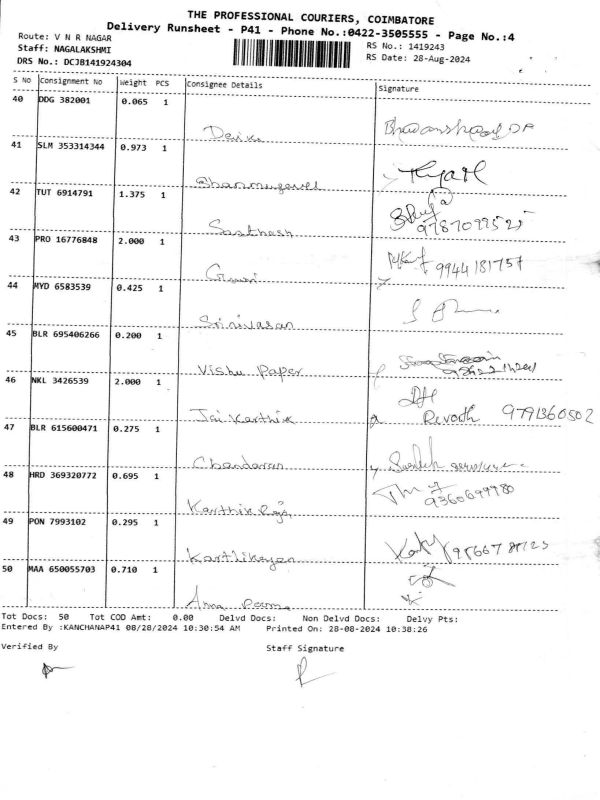 THE PROFESSIONAL COURIERS, COIMBATORE
Delivery Runsheet - P41 - Phone No.:0422-3505555 - Page No.:4
Route: V N R NAGAR
RS No.: 1419243
Staff: NAGALAKSHMI
RS Date: 28-Aug-2024
DRS No.: DCJB141924304
S No Consignment No Weight PCS Consignee Details Signature
40 DDG 382001 0.065 1
41 SLM 353314344 0.973 1
Shanmugavel
42 TUT 6914791 1.375 1
Santhosh 9787099525
43 PRO 16776848 2.000 1
Gowri 9944181757
44 MYD 6583539 0.425 1
Srinivasan
45 BLR 695406266 0.200 1
Vishu Paper
46 NKL 3426539 2.000 1
Jai Karthik Revath 9791360502
47 BLR 615600471 0.275 1
Chandaran
48 HRD 369320772 0.695 1
Karthik Raja 9360699980
49 PON 7993102 0.295 1
Karthikeyan
50 MAA 650055703 0.710 1
Tot Docs: 50 Tot COD Amt: 0.00 Delvd Docs: Non Delvd Docs: Delvy Pts:
Entered By :KANCHANAP41 08/28/2024 10:30:54 AM Printed On: 28-08-2024 10:38:26
Verified By Staff Signature